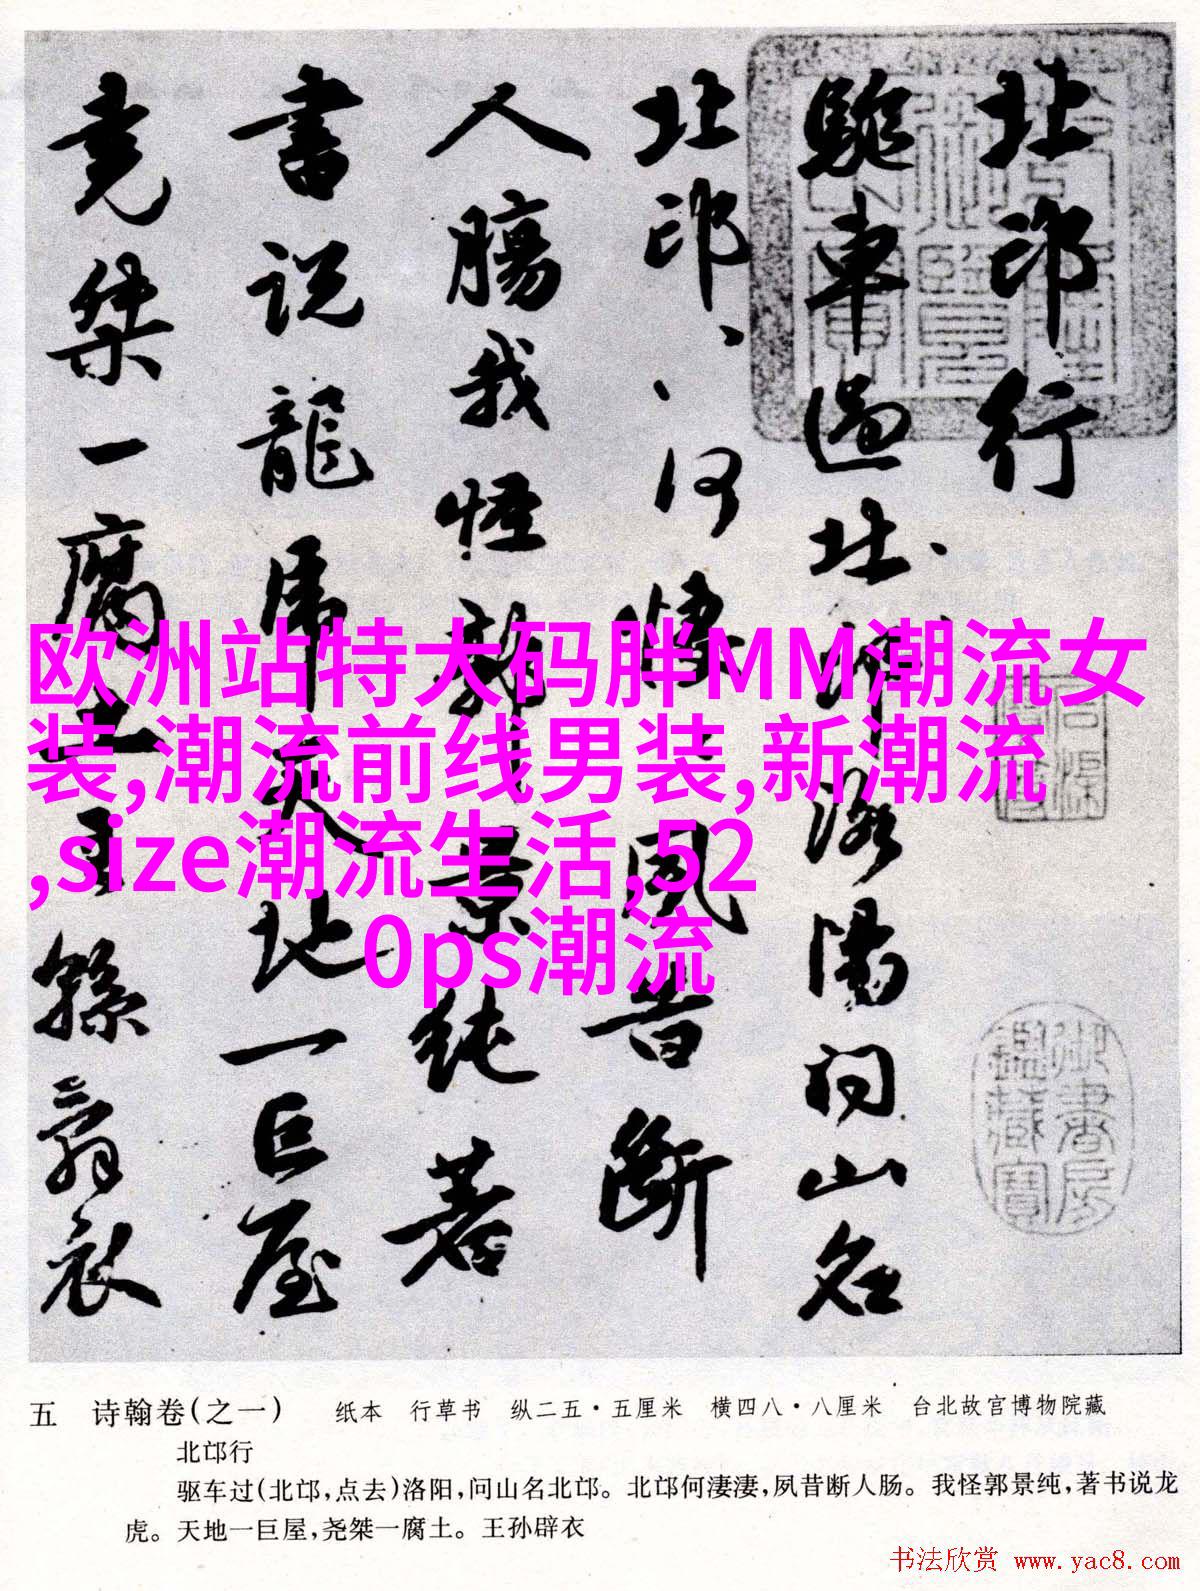 北邙行
駈車過北邙洛陽问山名
北邙、、何悽、夙昔断
人腸我怪郭景纯著
書说龍虎天地一巨屋
尧桀一腐土王孫辟衣
御書房鑑藏寶
欧洲站特大码胖MM潮流女
装,潮流前线男装,新潮流
,size潮流生活,52
0ps潮流
五 诗翰卷(之一) 纸本 行草书 纵二五·五厘米 横四八·八厘米 台北故宫博物院藏
北邙行
驱车过(北邙,点去)洛阳,问山名北邙。北邙何淒淒,夙昔断人肠。我怪郭景纯,著书说龙
虎。天地一巨屋,尧桀一腐土。王孙辟衣
书法欣赏 www.yac8.com